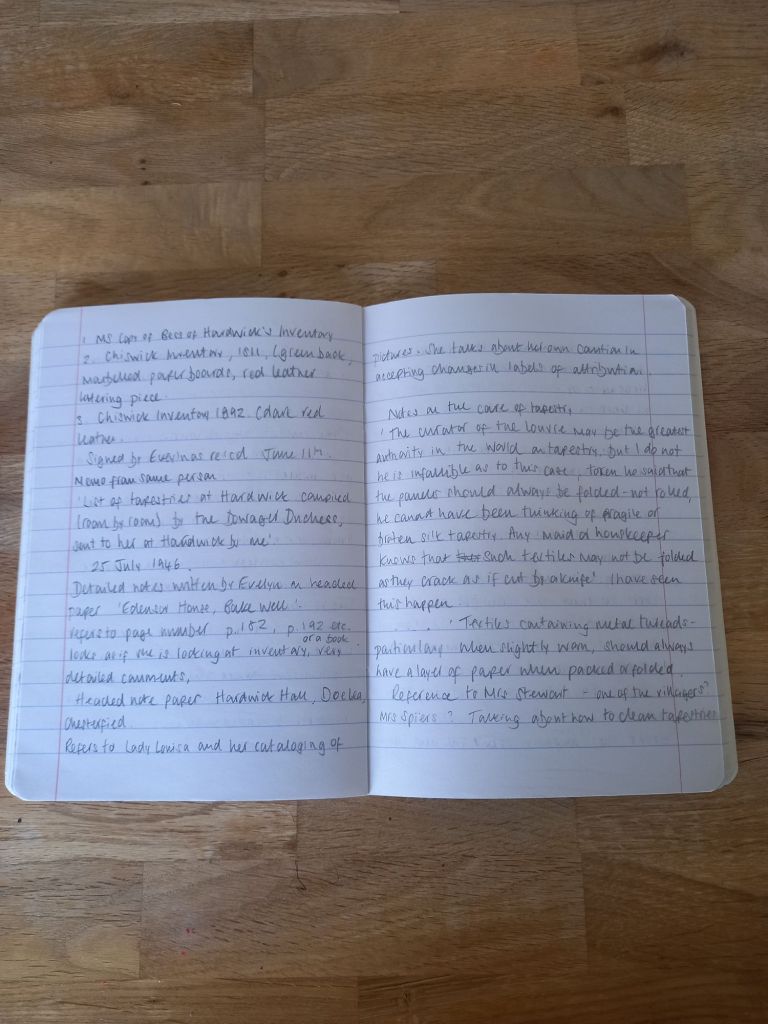 1. MS Copy of Bess of Hardwick's Inventory
2. Chiswick Inventory, 1811, (green back,
marbelled paper boards, red leather
latering piece.
3. Chiswick Inventory 1892 (dark red
leather.
Signed by Evelyn as rec'd June 11th
Memo from same person.
'List of tapestries at Hardwick compiled
(room by room) by the Dowager Duchess,
sent to her at Hardwick by me'
25 July 1946.
Detailed notes written by Evelyn on headed
paper 'Edensor House, Bakewell'.
refers to page number p.152, p.192 etc.
or a book
looks as if she is looking at inventory, very
detailed comments,
Headed note paper Hardwick Hall, Doelea,
Chesterfied.
Refers to Lady Louisa and her cataloging of
pictures. She talks about her own caution in
accepting changes in labels of attribution.
Notes on the care of tapestry
'The curator of the louvre may be the greatest
authority in the world on tapestry, but I do not
he is infallible as to this case, he said that
the panels should always be folded - not rolled,
he cannot have been thinking of fragile or
broken silk tapestry. Any maid or houskeeper
knows that such textiles may not be folded
as they crack as if cut by a knife' I have seen
this happen.
'Textiles containing metal threads -
particulary when slightly worn, should always
have a layer of paper when packed or folded.
Reference to Mrs Stewart - one of the villagers?
Mrs Spiers? Talking about how to clean tapestries